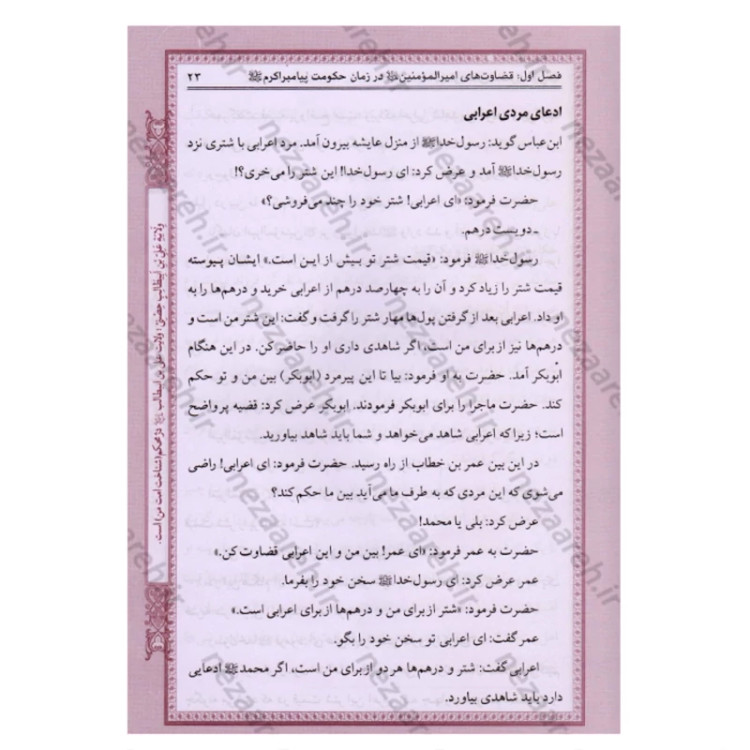 فصل اول: قضاوت‌های امیرالمؤمنین ﷺ در زمان حکومت پیامبر اکرم ﷺ ۲۳
ادعای مردی اعرابی
ابن عباس گوید: رسول خدا ﷺ از منزل عایشه بیرون آمد. مرد اعرابی با شتری نزد
رسول خدا ﷺ آمد و عرض کرد: ای رسول خدا! این شتر را می‌خری؟!
حضرت فرمود: «ای اعرابی! شتر خود را چند می‌فروشی؟»
ـ دویست درهم.
رسول خدا ﷺ فرمود: «قیمت شتر تو بیش از این است.» ایشان پیوسته
قیمت شتر را زیاد کرد و آن را به چهارصد درهم از اعرابی خرید و درهم‌ها را به
او داد. اعرابی بعد از گرفتن پول‌ها مهار شتر را گرفت و گفت: این شتر من است و
درهم‌ها نیز از برای من است، اگر شاهدی داری او را حاضر کن. در این هنگام
ابوبکر آمد. حضرت به او فرمود: بیا تا این پیرمرد (ابوبکر) بین من و تو حکم
کند. حضرت ماجرا را برای ابوبکر فرمودند. ابوبکر عرض کرد: قضیه پر واضح
است؛ زیرا که اعرابی شاهد می‌خواهد و شما باید شاهد بیاورید.
در این بین عمر بن خطاب از راه رسید. حضرت فرمود: ای اعرابی! راضی
می‌شوی که این مردی که به طرف ما می‌آید بین ما حکم کند؟
عرض کرد: بلی یا محمد!
حضرت به عمر فرمود: «ای عمر! بین من و این اعرابی قضاوت کن.»
عمر عرض کرد: ای رسول خدا ﷺ سخن خود را بفرما.
حضرت فرمود: «شتر از برای من و درهم‌ها از برای اعرابی است.»
عمر گفت: ای اعرابی تو سخن خود را بگو.
اعرابی گفت: شتر و درهم‌ها هر دو از برای من است، اگر محمد ﷺ ادعایی
دارد باید شاهدی بیاورد.
nezaareh.ir